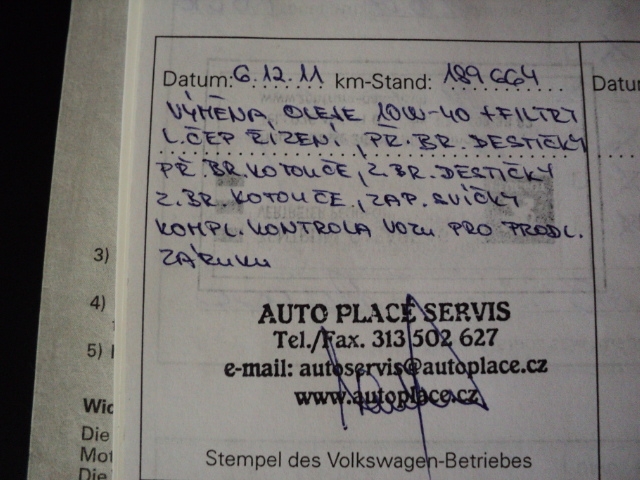 Datum: 6.12.11 km-Stand: 189 664
VÝMĚNA OLEJE 10W-40 + FILTRY
L.ČEP ŘÍZENÍ, PŘ. BR. DESTIČKY
PŘ. BR. KOTOUČE, Z. BR. DESTIČKY
Z. BR. KOTOUČE, ZAP. SVÍČKY
KOMPL. KONTROLA VOZU PRO PRODL.
ZÁRUKU
AUTO PLACE SERVIS
Tel./Fax. 313 502 627
e-mail: autoservis@autoplace.cz
www.autoplace.cz
Stempel des Volkswagen-Betriebes
Datu
3)
4)
5)
Wic
Die
Mot
Die